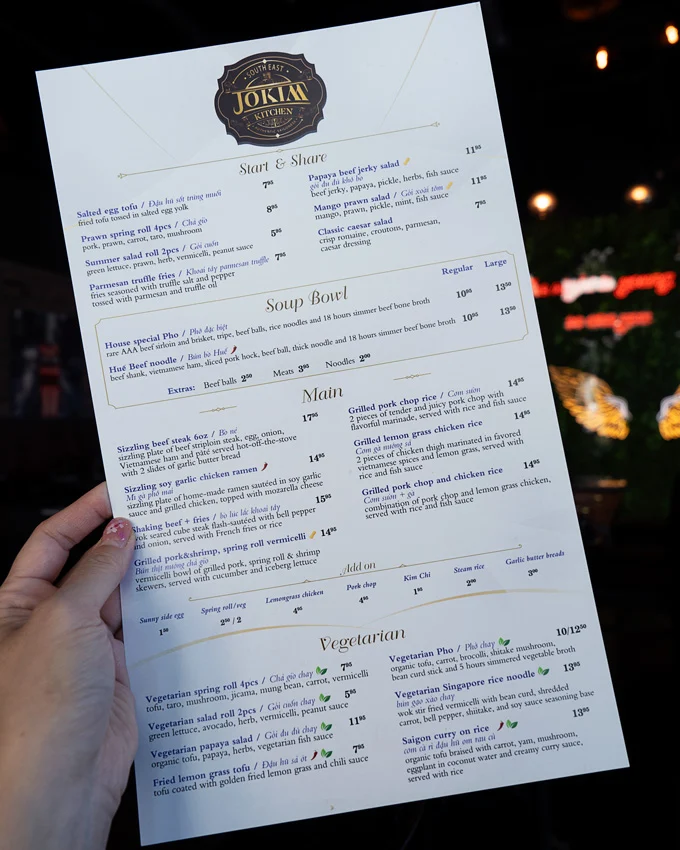 SOUTH EAST
JOKIM
KITCHEN
Start & Share
Salted egg tofu / Đậu hủ sốt trứng muối 7⁹⁵
fried tofu tossed in salted egg yolk
Prawn spring roll 4pcs / Chả giò 8⁹⁵
pork, prawn, carrot, taro, mushroom
Summer salad roll 2pcs / Gỏi cuốn 5⁹⁵
green lettuce, prawn, herb, vermicelli, peanut sauce
Parmesan truffle fries / Khoai tây parmesan truffle 7⁹⁵
fries seasoned with truffle salt and pepper
tossed with parmesan and truffle oil
Papaya beef jerky salad 11⁹⁵
gỏi đu đủ khô bò
beef jerky, papaya, pickle, herbs, fish sauce
Mango prawn salad / Gỏi xoài tôm 11⁹⁵
mango, prawn, pickle, mint, fish sauce
Classic caesar salad 7⁹⁵
crisp romaine, croutons, parmesan,
caesar dressing
Soup Bowl
Regular Large
House special Pho / Phở đặc biệt 10⁹⁵ 13⁵⁰
rare AAA beef sirloin and brisket, tripe, beef balls, rice noodles and 18 hours simmer beef bone broth
Huế Beef noodle / Bún bò Huế 10⁹⁵ 13⁵⁰
beef shank, vietnamese ham, sliced pork hock, beef ball, thick noodle and 18 hours simmer beef bone broth
Extras: Beef balls 2⁵⁰ Meats 3⁹⁵ Noodles 2⁰⁰
Main
Sizzling beef steak 6oz / Bò né 17⁹⁵
sizzling plate of beef striploin steak, egg, onion,
Vietnamese ham and pâté served hot-off-the-stove
with 2 slides of garlic butter bread
Sizzling soy garlic chicken ramen 14⁹⁵
Mì gà phô mai
sizzling plate of home-made ramen sautéed in soy garlic
sauce and grilled chicken, topped with mozarella cheese
Shaking beef + fries / bò lúc lắc khoai tây 15⁹⁵
wok seared cube steak flash-sautéed with bell pepper
and onion, served with French fries or rice
Grilled pork&shrimp, spring roll vermicelli 14⁹⁵
Bún thịt nướng chả giò
vermicelli bowl of grilled pork, spring roll & shrimp
skewers, served with cucumber and iceberg lettuce
Grilled pork chop rice / Cơm sườn 14⁹⁵
2 pieces of tender and juicy pork chop with
flavorful marinade, served with rice and fish sauce
Grilled lemon grass chicken rice 14⁹⁵
Cơm gà nướng sả
2 pieces of chicken thigh marinated in favored
vietnamese spices and lemon grass, served with
rice and fish sauce
Grilled pork chop and chicken rice 14⁹⁵
Cơm sườn + gà
combination of pork chop and lemon grass chicken,
served with rice and fish sauce
Add on
Sunny side egg Spring roll/veg Lemongrass chicken Pork chop Kim Chi Steam rice Garlic butter breads
1⁵⁰ 2⁵⁰ / 2 4⁹⁵ 4⁹⁵ 1⁹⁵ 2⁰⁰ 3⁰⁰
Vegetarian
Vegetarian spring roll 4pcs / Chả giò chay 7⁹⁵
tofu, taro, mushroom, jicama, mung bean, carrot, vermicelli
Vegetarian salad roll 2pcs / Gỏi cuốn chay 5⁹⁵
green lettuce, avocado, herb, vermicelli, peanut sauce
Vegetarian papaya salad / Gỏi đu đủ chay 11⁹⁵
organic tofu, papaya, herbs, vegetarian fish sauce
Fried lemon grass tofu / Đậu hủ sả ớt 7⁹⁵
tofu coated with golden fried lemon grass and chili sauce
Vegetarian Pho / Phở chay 10/12⁵⁰
organic tofu, carrot, brocolli, shitake mushroom,
bean curd stick and 5 hours simmered vegetable broth
Vegetarian Singapore rice noodle 13⁹⁵
bún gạo xào chay
wok stir fried vermicelli with bean curd, shredded
carrot, bell pepper, shitake, and soy sauce seasoning base
Saigon curry on rice 13⁹⁵
cơm cà ri đậu hủ om rau củ
organic tofu braised with carrot, yam, mushroom,
eggplant in coconut water and creamy curry sauce,
served with rice